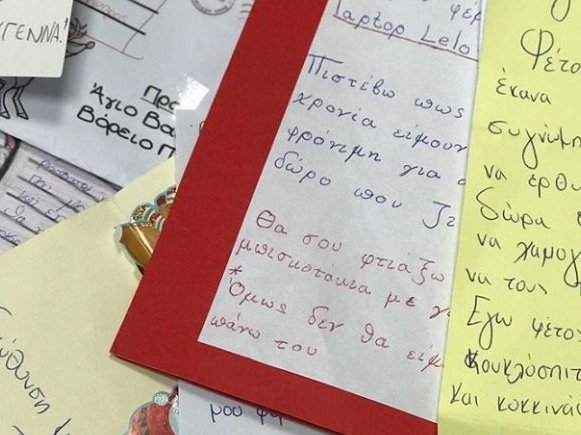 ΓΕΝΝΑ!
Προ
Άγιο Βα
Βόρειο Π
φερ
laptop Lelo
Πιστέβω πως
χρονία είμουν
φρόνιμη για
δώρο που ζε
Θα σου φτιάξω
μπισκοτακια με γ
* Όμως δεν θα είμ
πάνω του
Φέτο
έκανα
συγνώμ
να έρθω
δώρα
να χαμογ
να τους
Εγω φέτο
κουκλόσπιτ
και κοκκινά
μου